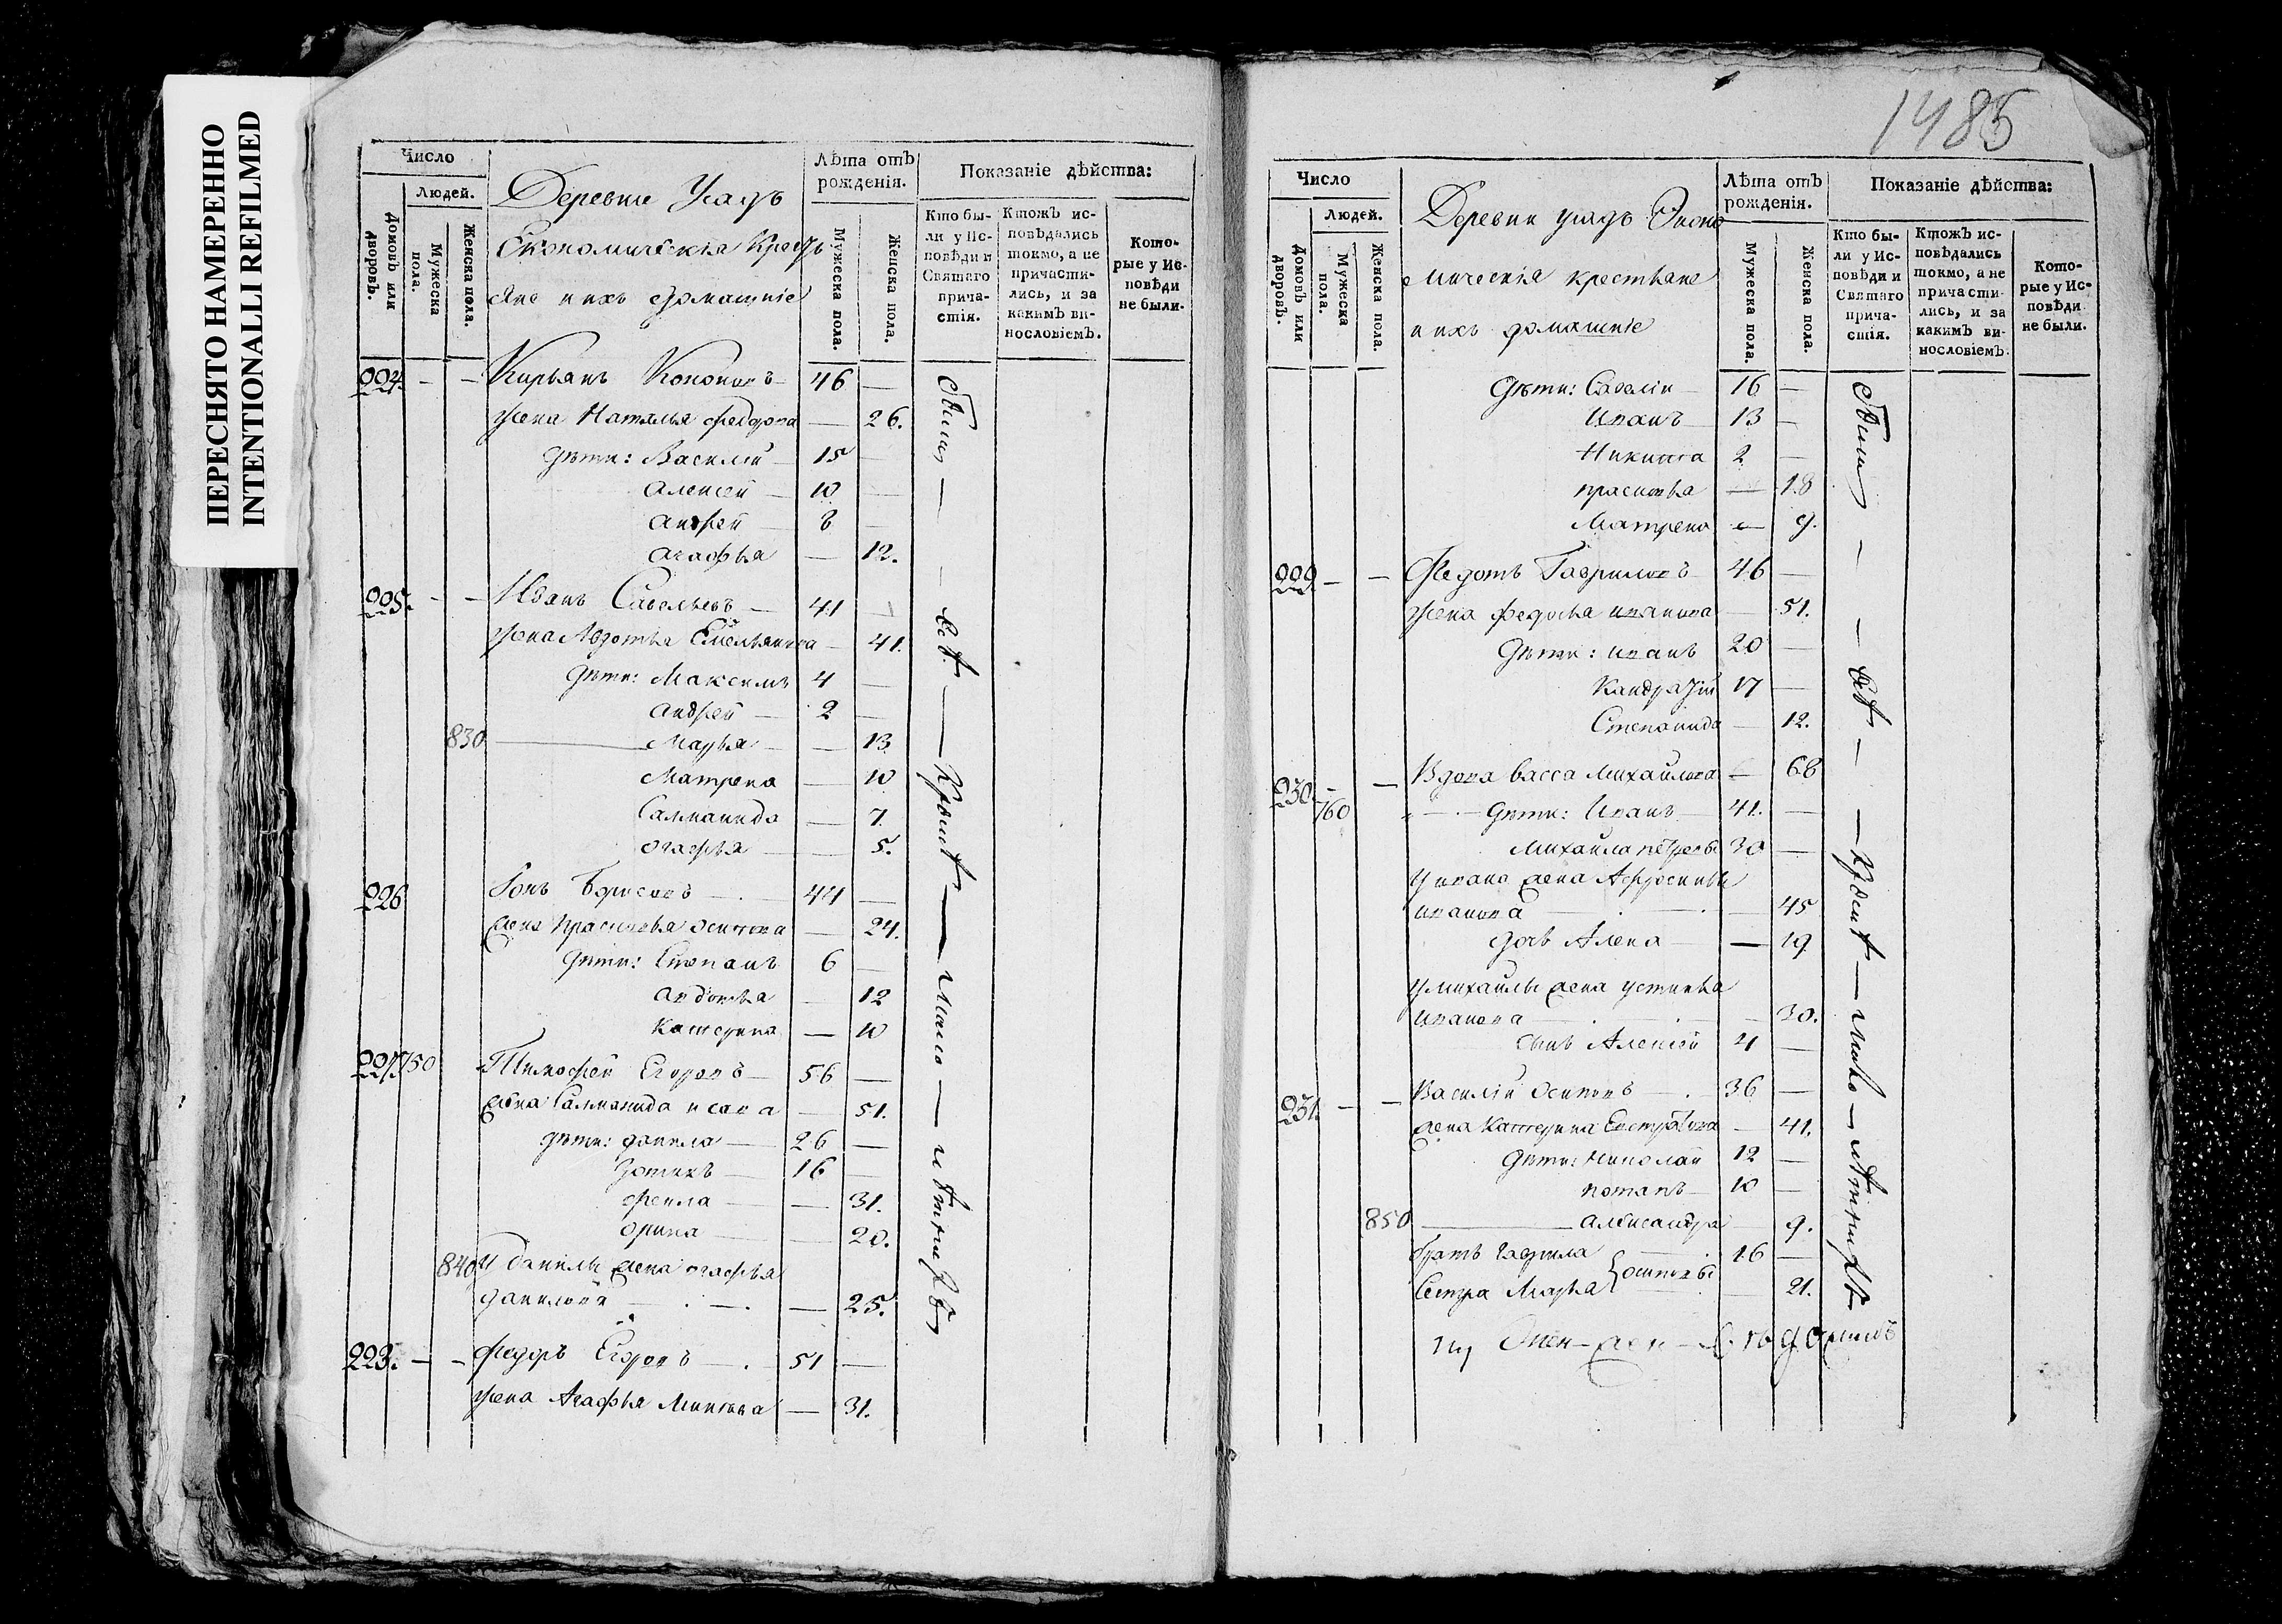 ПЕРЕСНЯТО НАМЕРЕННО
INTENTIONALLI REFILMED
Число
Людей.
Домовъ или дворовъ.
Мужеска пола.
Женска пола.
Деревни Усадъ
Економическія крестъ
яне и ихъ домашніе
Лѣта отъ рожденія.
Мужеска пола.
Женска пола.
Показаніе дѣйства:
Кто бы-
ли у Ис-
повѣди и
Святаго
прича-
стія.
Ктожъ ис-
повѣдались
токмо, а не
причасти-
лись, и за
какимъ ви-
нословіемъ.
Кото-
рые у Ис-
повѣди
не были.
224. — — Кирьянъ Кононовъ — 46 —
жена Наталья Федорова — 26.
дѣти: Василій — 15 —
Алексей — 10 —
Андрей — 8 —
Агафья — 12.
225. — — Иванъ Савельевъ — 41 —
жена Авдотья Емельянова — 41.
дѣти: Максимъ 4 —
Андрей — 2 —
830 Марья — 13
Матрена — 10
Саламанида — 7.
Огафья — 5.
226 Борисовъ — 44 —
жена Прасковья Осипова — 24.
дѣти: Степанъ 6 —
Авдотья — 12
Катерина — 10
227 750 Тимофей Егоровъ — 56 —
жена Саламанида Исаева — 51.
дѣти: Данила — 26 —
Зотикъ — 16 —
Фекла — 31.
Орина — 20.
840 У Данилы жена Огафья
Данилова — 25.
228. — — Федоръ Егоровъ — 51 —
жена Агафья — 31.
Были — всѣ — кромѣ — мало — лѣтныхъ
1485
Число
Людей.
Домовъ или дворовъ.
Мужеска пола.
Женска пола.
Деревни Усадъ Эконо
мическія крестьяне
и ихъ домашніе
Лѣта отъ рожденія.
Мужеска пола.
Женска пола.
Показаніе дѣйства:
Кто бы-
ли у Ис-
повѣди и
Святаго
прича-
стія.
Ктожъ ис-
повѣдались
токмо, а не
причасти-
лись, и за
какимъ ви-
нословіемъ.
Кото-
рые у Ис-
повѣди
не были.
дѣти: Савелій — 16 —
Иванъ 13 —
Никита 2 —
Прасковья — 18
Матрена — 9.
229 — — Федотъ Гавриловъ 46 —
жена Федосья Иванова — 51.
дѣти: Иванъ 20 —
Кандратій 17 —
Степанида — 12.
230. — — Вдова Васса Михайлова — 68
760 дѣти: Иванъ — 41. —
Михайла Петровы 30 —
У Ивана жена Афросинья
Иванова — 45
дочь Алена — 19
У Михайлы жена Устинья
Иванова — 30.
сынъ Алексей 4 —
231. — — Василій Осиповъ — 36 —
жена Катерина Евстратова — 41.
дѣти: Николай 12 —
Потапъ — 10 —
850 Александра — 9.
братъ Гаврила 16 —
сестра Марья } Осиповы — 21.
Были — всѣ — кромѣ — мало — лѣтныхъ